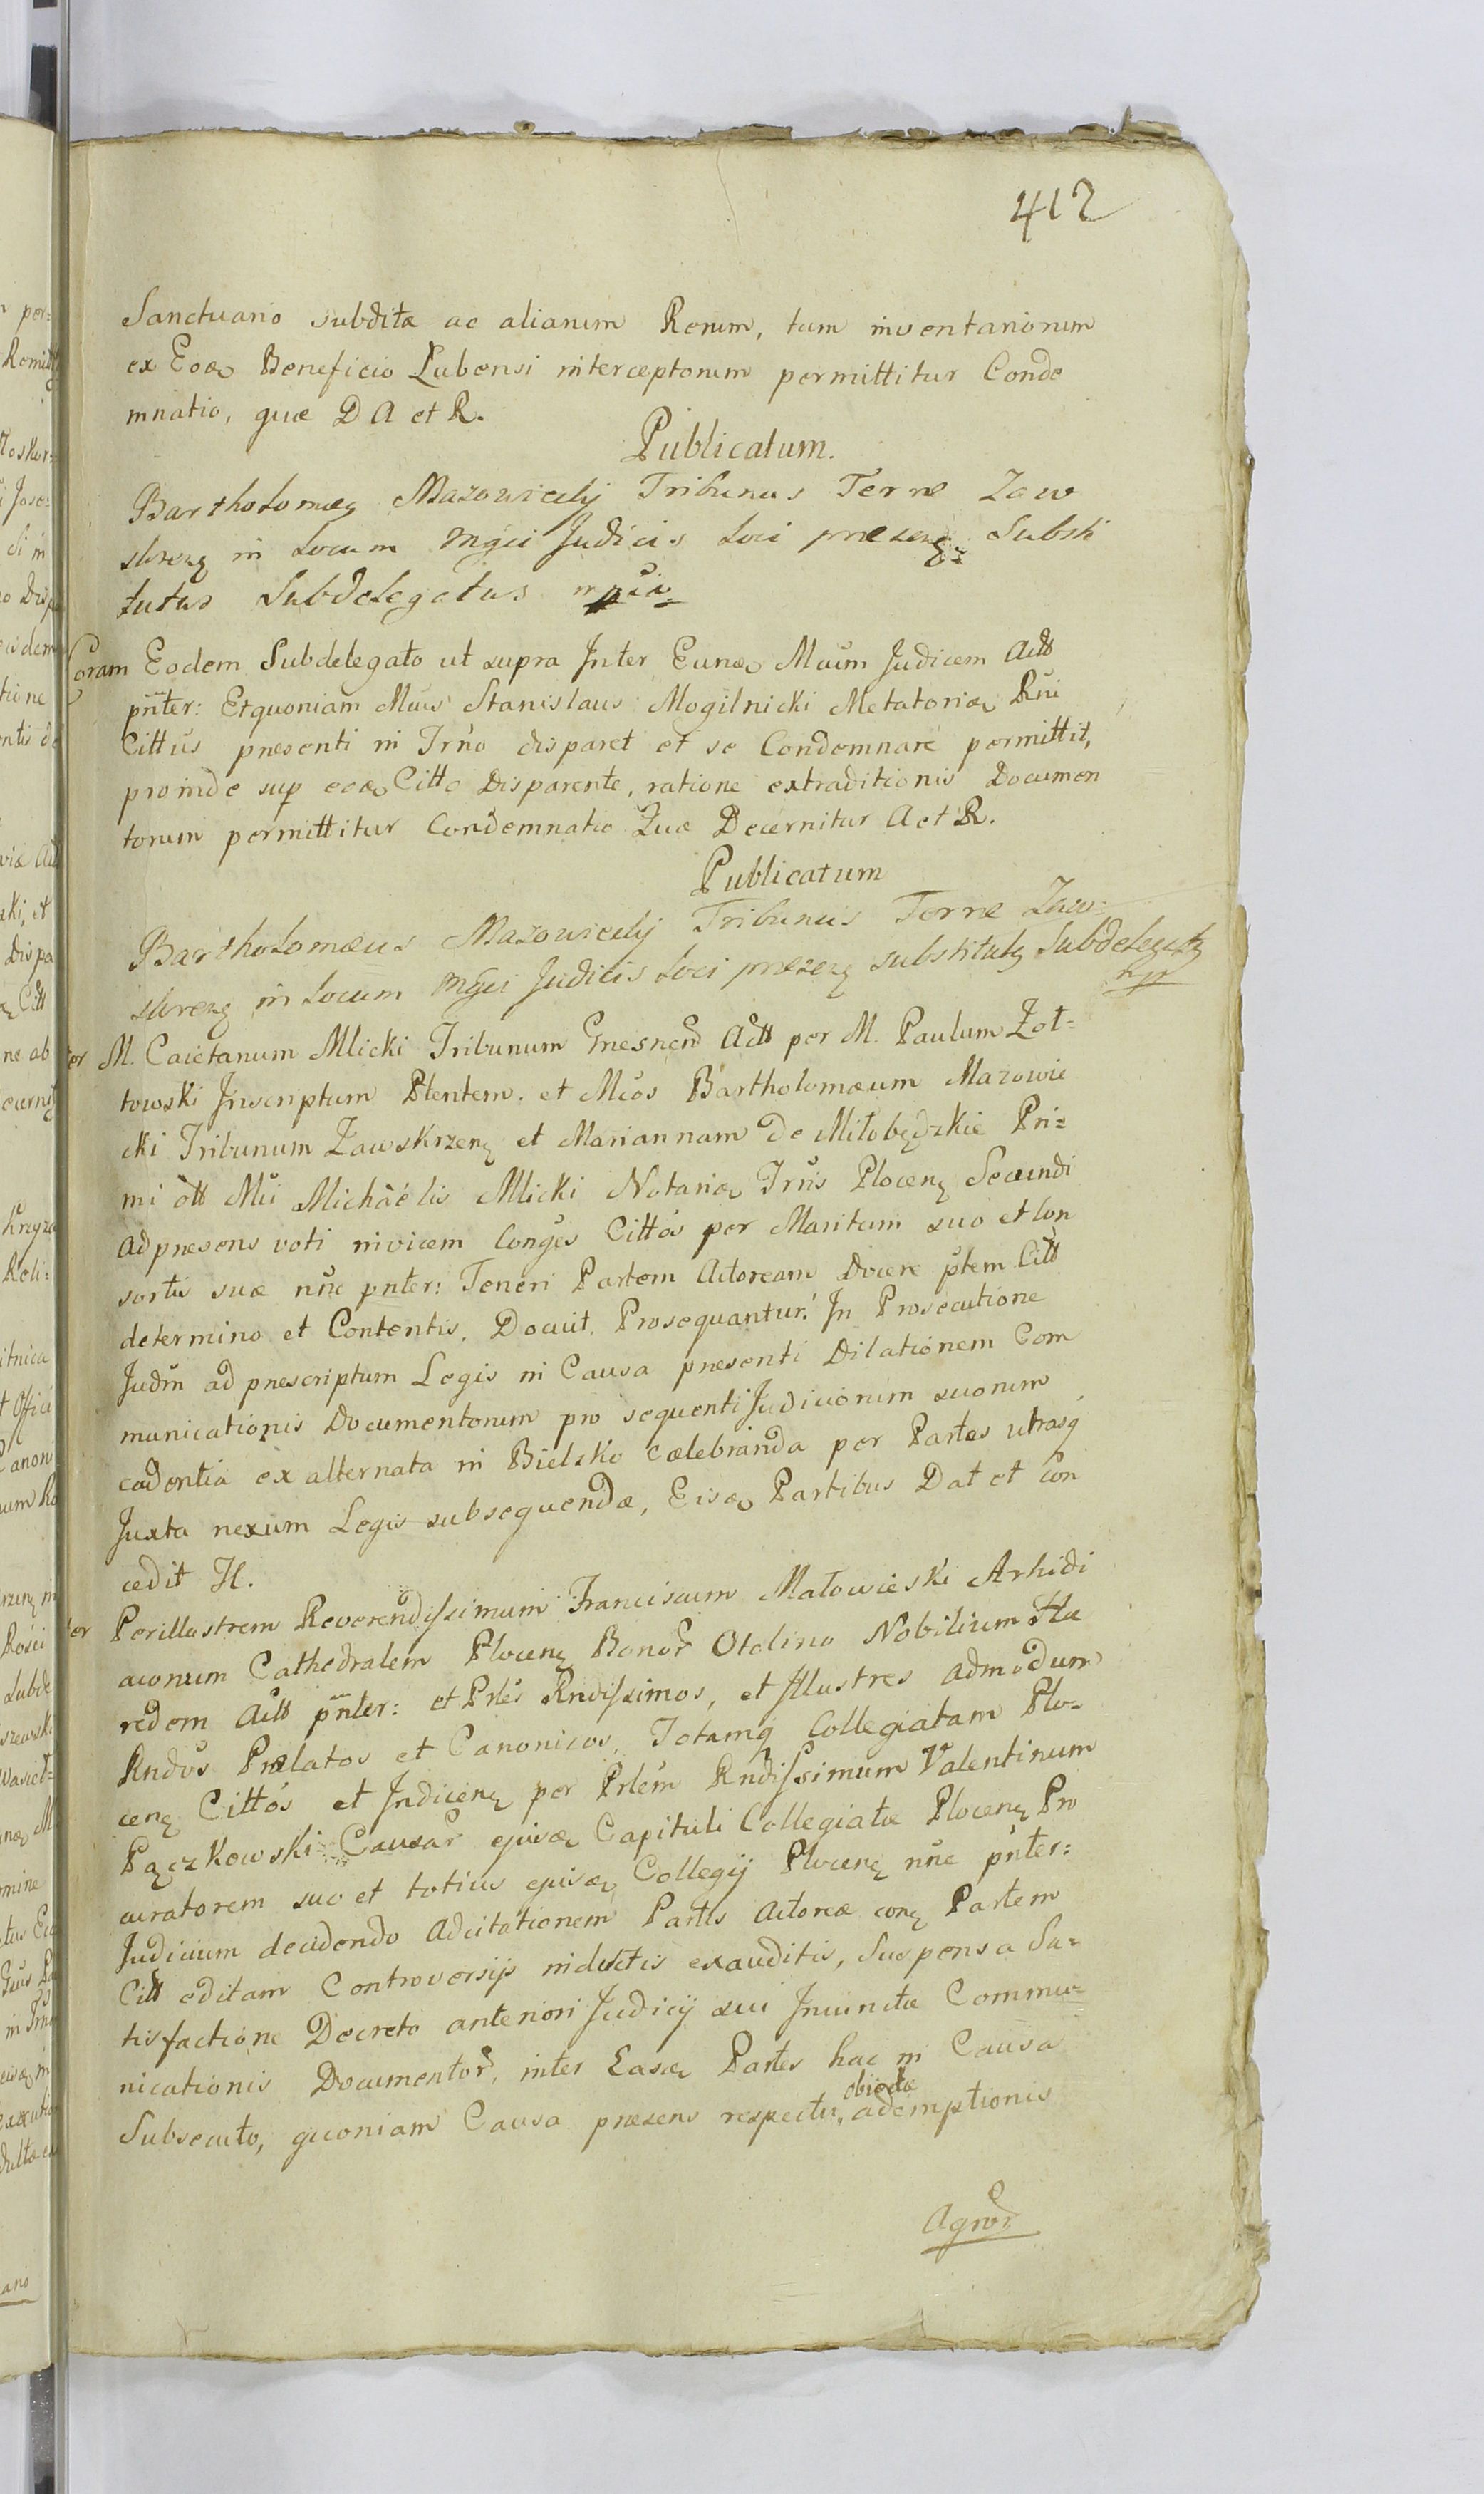 412
Sanctuario subdita ac aliarum Rerum, tum inventariorum
ex Eodem Beneficio Lubensi interceptorum permittitur Conde
mnatio, quæ D A et R.
Publicatum.
Bartholomæus Mazowiecky Tribunus Terræ Zaw
skrzen in Locum Mgci Judicis Loci præzen: Substi
tutus Subdelegatus mpia
Coram Eodem Subdelegato ut supra Inter Eundem Mcum Judicem Actt
pnter: Et quoniam Mcus Stanislaus Mogilnicki Metatoriæ Rni
Cittus præsenti in Trno disparet et se Condemnare permittit,
proinde sup eodem Citto Disparente, ratione extraditionis Documen
torum permittitur Condemnatio Quæ Decernitur A et R.
Publicatum
Bartholomæus Mazowiecky Tribunus Terræ Zaw:
skrzen in Locum Mgci Judicis Loci præzen substitutus Subdelegatus
mp
ter M. Caietanum Mlicki Tribunum Gnesnen Actt per M. Paulum Zot=
towski Inscriptum Plentem. et Mcos Bartholomæum Mazowie
cki Tribunum Zawskrzen et Mariannam de Miłobędzkie Pri=
mi ött Mci Michaëlis Mlicki Notariæ Trris Plocen Secundi
ad præsens voti invicem Conges Cittos per Maritum suo et Con
sortis suæ nne pnter: Teneri Partem Actoream Docere ptem Citt
determino et Contentis. Docuit. Prosequantur. In Prosecutione
Judm ad præscriptum Legis in Causa præsenti Dilationem Com
municationis Documentorum pro sequenti Judiciorum suorum
cadentia ex alternata in Bielsko cælebranda per Partes utrasq
Juxta nexum Legis subsequendæ, Eisdem Partibus Dat et Con
cedit H.
ter Perillustrem Reverendissimum Franciscum Małowieski Arhidi
aconum Cathedralem Plocen Bonor Otolino Nobilium Hæ
redem Actt pnter: et Prles Rndissimos, et Illustres admodum
Rndos Prælatos et Canonicos, Totamq Collegiatam Plo=
cen Cittos et Indicen per Prlem Rndissimum Valentinum
Pączkowski Causar ejusdem Capituli Collegiatæ Plocen Pro
curatorem suo et totius ejusdem Collegij Plocen nne pnter:
Judicium decidendo Adcitationem Partis Actoreæ con Partem
Citt editam Controversijs inductis exauditis, Suspensa Sa=
tisfactione Decreto anteriori Judicij sui Iniunctæ Commu=
nicationis Documentor, inter Easdem Partes hac in Causa
Subsecuto, quoniam Causa præsens respectu, obiectæ ademptionis
Agror